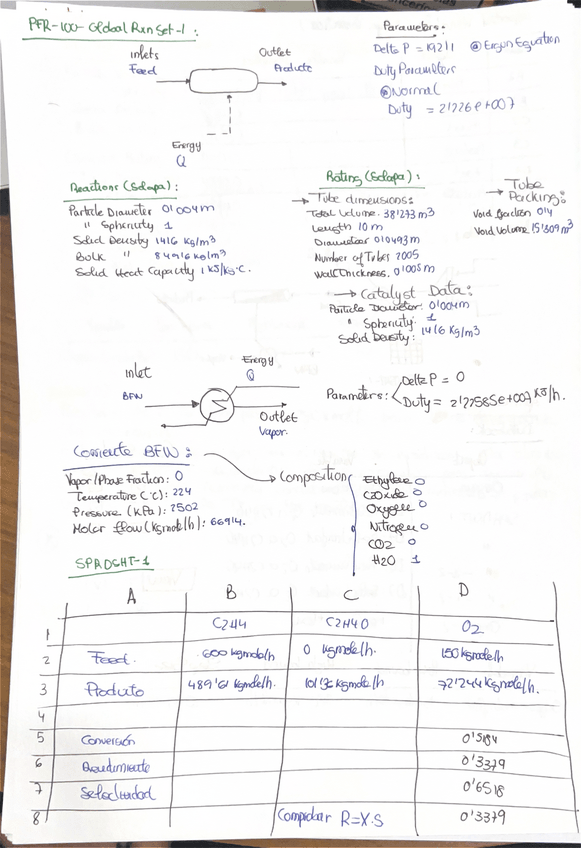 PFR-100-Global Rxn Set-1:
Parameters:
Inlets
Feed
Outlet
Producto
Energy
Q
Delta P = 192'1 @Ergun Equation
Duty Parameters
@Normal
Duty = 2'226e+007
Reactions (Solapa):
Particle Diameter 0'004m
" Sphericity 1
Solid Density 1416 Kg/m³
Bulk " 849'6 Kg/m³
Solid Heat Capacity 1 KJ/Kg°C.
Rating (Solapa):
→ Tube dimensions:
Total Volume: 38'273 m³
Length 10 m
Diameter 0'0493m
Number of Tubes 2005
Wall Thickness. 0'005m
→ Catalyst Data:
Particle Diameter: 0'004m
" Sphericity: 1
Solid Density: 1416 Kg/m³
→ Tube Packing:
Void fraction 0'4
Void Volume 15'309 m³
Inlet
BFW
Energy
Q
Outlet
Vapor.
Parameters:
Delta P = 0
Duty = 2'22585e+007 KJ/h.
Corriente BFW:
Vapor/Phase Fraction: 0
Temperature (°C): 224
Pressure (KPa): 2502
Molar flow (Kgmole/h): 669'4.
→ Composition
Ethylene 0
C2Oxide 0
Oxygen 0
Nitrogen 0
CO2 0
H2O 1
SPRDSHT-1
A B C D
1 C2H4 C2H4O O2
2 Feed. 600 Kgmole/h 0 Kgmole/h. 150 Kgmole/h
3 Producto 489'61 Kgmole/h. 101'36 Kgmole/h 72'244 Kgmole/h.
4
5 Conversión 0'5184
6 Rendimiento 0'3379
7 Selectividad 0'6518
8 Comprobar R=X·S 0'3379